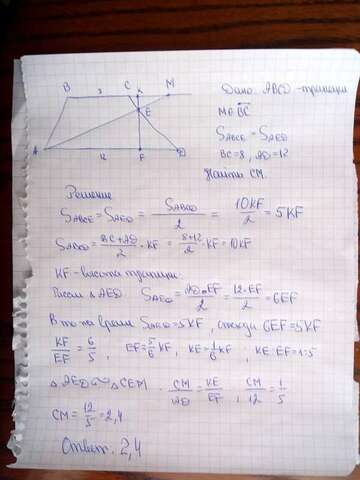 B 8 C K M
E
A 12 F D
Дано: ABCD - трапеция
M∈BC
S_ABCE = S_AED
BC=8, AD=12
Найти CM.
Решение
S_ABCE = S_AED = S_ABCD/2 = 10KF/2 = 5KF
S_ABCD = (BC+AD)/2 · KF = (8+12)/2 · KF = 10KF
KF - высота трапеции
Рассм. △AED S_AED = AD·EF/2 = 12·EF/2 = 6EF
В то же время S_AED = 5KF, откуда 6EF=5KF
KF/EF = 6/5, EF=5/6 KF, KE=1/6 KF, KE:EF=1:5
△AED ∾ △CEM. CM/AD = KE/EF, CM/12 = 1/5
CM = 12/5 = 2,4
Ответ: 2,4